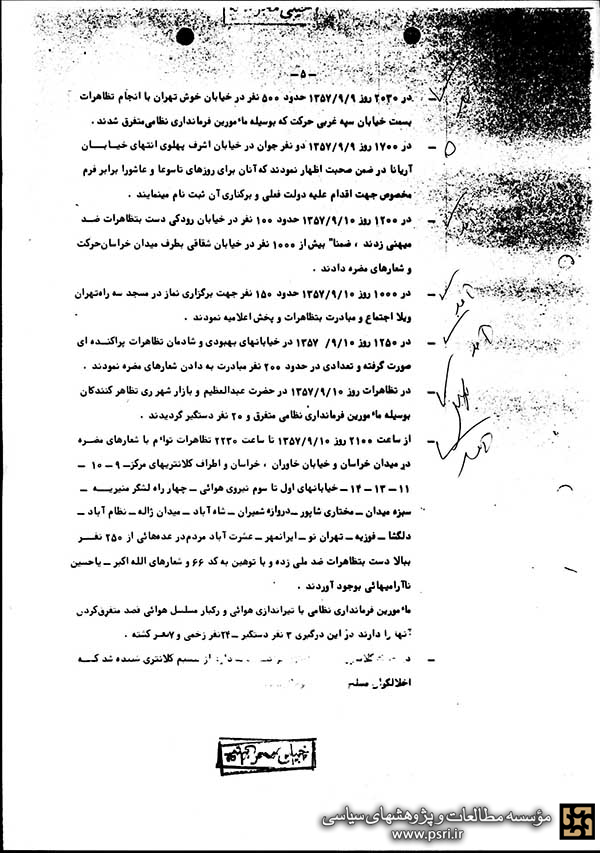 -۵-
- در ۲۰۳۰ روز ۱۳۵۷/۹/۹ حدود ۵۰۰ نفر در خیابان خوش تهران با انجام تظاهرات
بسمت خیابان سپه غربی حرکت که بوسیله مامورین فرمانداری نظامی متفرق شدند .
- در ۱۷۰۰ روز ۱۳۵۷/۹/۹ دو نفر جوان در خیابان اشرف پهلوی انتهای خیابان
آریانا در ضمن صحبت اظهار نمودند که آنان برای روزهای تاسوعا و عاشورا برابر فرم
مخصوص جهت اقدام علیه دولت فعلی و برکناری آن ثبت نام مینمایند
- در ۱۲۰۰ روز ۱۳۵۷/۹/۱۰ حدود ۱۰۰ نفر در خیابان رودکی دست بتظاهرات ضد
میهنی زدند ، ضمنا" بیش از ۱۰۰۰ نفر در خیابان شقاقی بطرف میدان خراسان حرکت
و شعارهای مضره دادند .
- در ۱۰۰۰ روز ۱۳۵۷/۹/۱۰ حدود ۱۵۰ نفر جهت برگزاری نماز در مسجد سه راه تهران
ویلا اجتماع و مبادرت بتظاهرات و پخش اعلامیه نمودند .
- در ۱۲۵۰ روز ۱۳۵۷/۹/۱۰ در خیابانهای بهبودی و شادمان تظاهرات پراکنده ای
صورت گرفته و تعدادی در حدود ۲۰۰ نفر مبادرت به دادن شعارهای مضره نمودند .
- در تظاهرات روز ۱۳۵۷/۹/۱۰ در حضرت عبدالعظیم و بازار شهرری تظاهر کنندگان
بوسیله مامورین فرمانداری نظامی متفرق و ۲۰ نفر دستگیر گردیدند .
- از ساعت ۲۱۰۰ روز ۱۳۵۷/۹/۱۰ تا ساعت ۲۲۳۰ تظاهرات توام با شعارهای مضره
در میدان خراسان و خیابان خاوران ، خراسان و اطراف کلانتریهای مرکز ۹-۱۰-
۱۱-۱۳-۱۴- خیابانهای اول تا سوم نیروی هوائی - چهار راه لشگر منیریه -
سبزه میدان - مختاری شاپور - دروازه شمیران - شاه آباد - میدان ژاله - نظام آباد -
دلگشا - فوزیه - تهران نو - ایرانمهر - عشرت آباد مردم در عده هائی از ۲۵۰ نفر
ببالا دست بتظاهرات ضد ملی زده و با توهین به کد ۶۶ و شعارهای الله اکبر - یاحسین
ناآرامیهائی بوجود آوردند .
مامورین فرمانداری نظامی با تیراندازی هوائی و رگبار مسلسل هوائی قصد متفرق کردن
آنها را دارند در این درگیری ۳ نفر دستگیر - ۲۴ نفر زخمی و ۷ نفر کشته .
- از کلانتری شنیده شد که
اخلالگران
مؤسسه مطالعات و پژوهشهای سیاسی
www.psri.ir